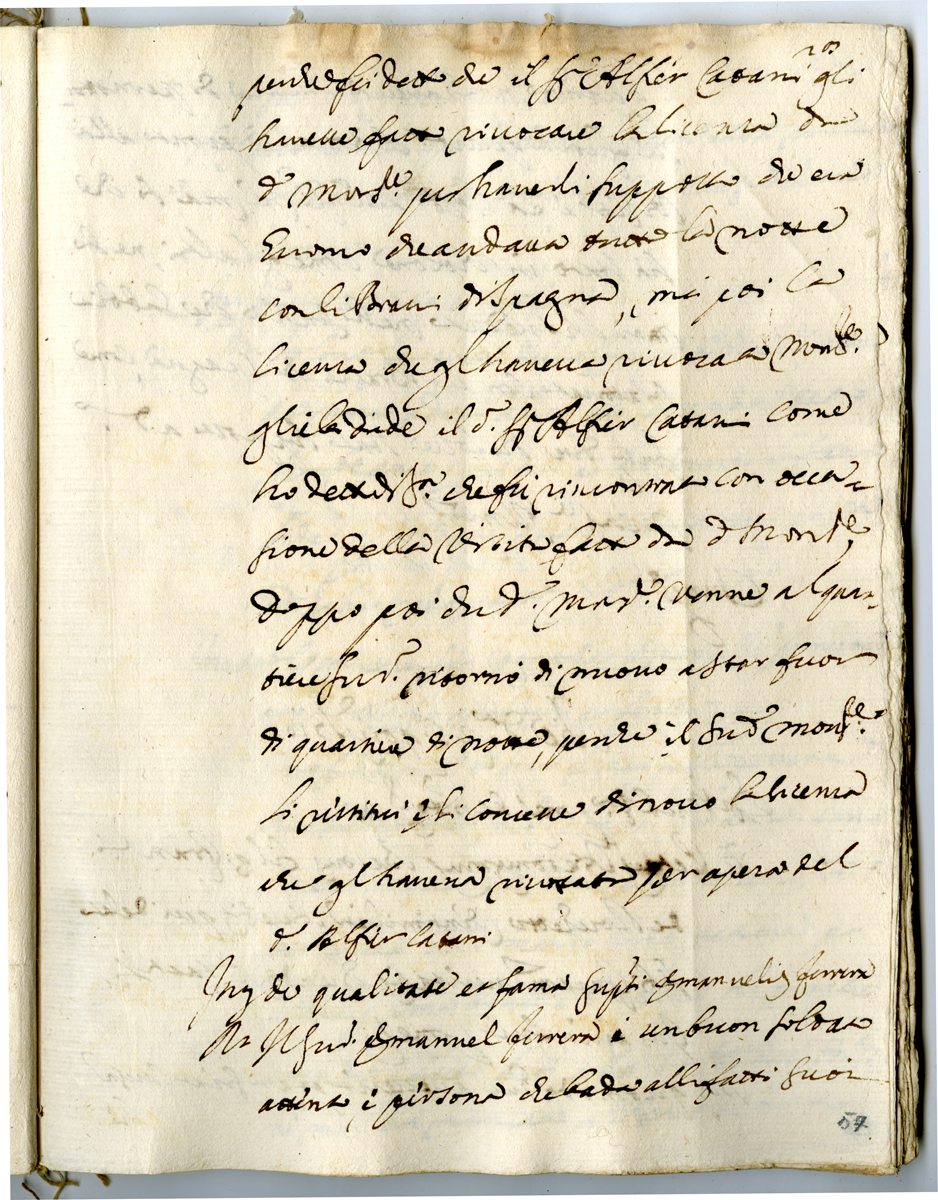 203
perche fu detto che il Sr Alfier Catani gli
havesse fatto rivocare la licenza da
do Monsle per haverli supposto che era
huomo che andava tutta la notte
con li Bravi di Spagna, mà poi la
licenza che gl haveva rivocata Monsle
gliela diede il do Sr Alfier Catani come
ho detto di sa che fù rincontrato con occa-
sione della visita fatta da do Monsle,
doppo poi che do Monsr venne al quar-
tiere sudo ritornò di nuovo a star fuor
di quartiere di notte, perche il sudo Monsle
li restituì e li concesse di novo la licenza
che gl haveva rivocata per opera del
do Alfier Catani
Ing de qualitate et fama supti Emanuelis ferrera
Rt Il sudo Emanuel ferrera è un buon soldato
attento, e persona che bada alli fatti suoi
57